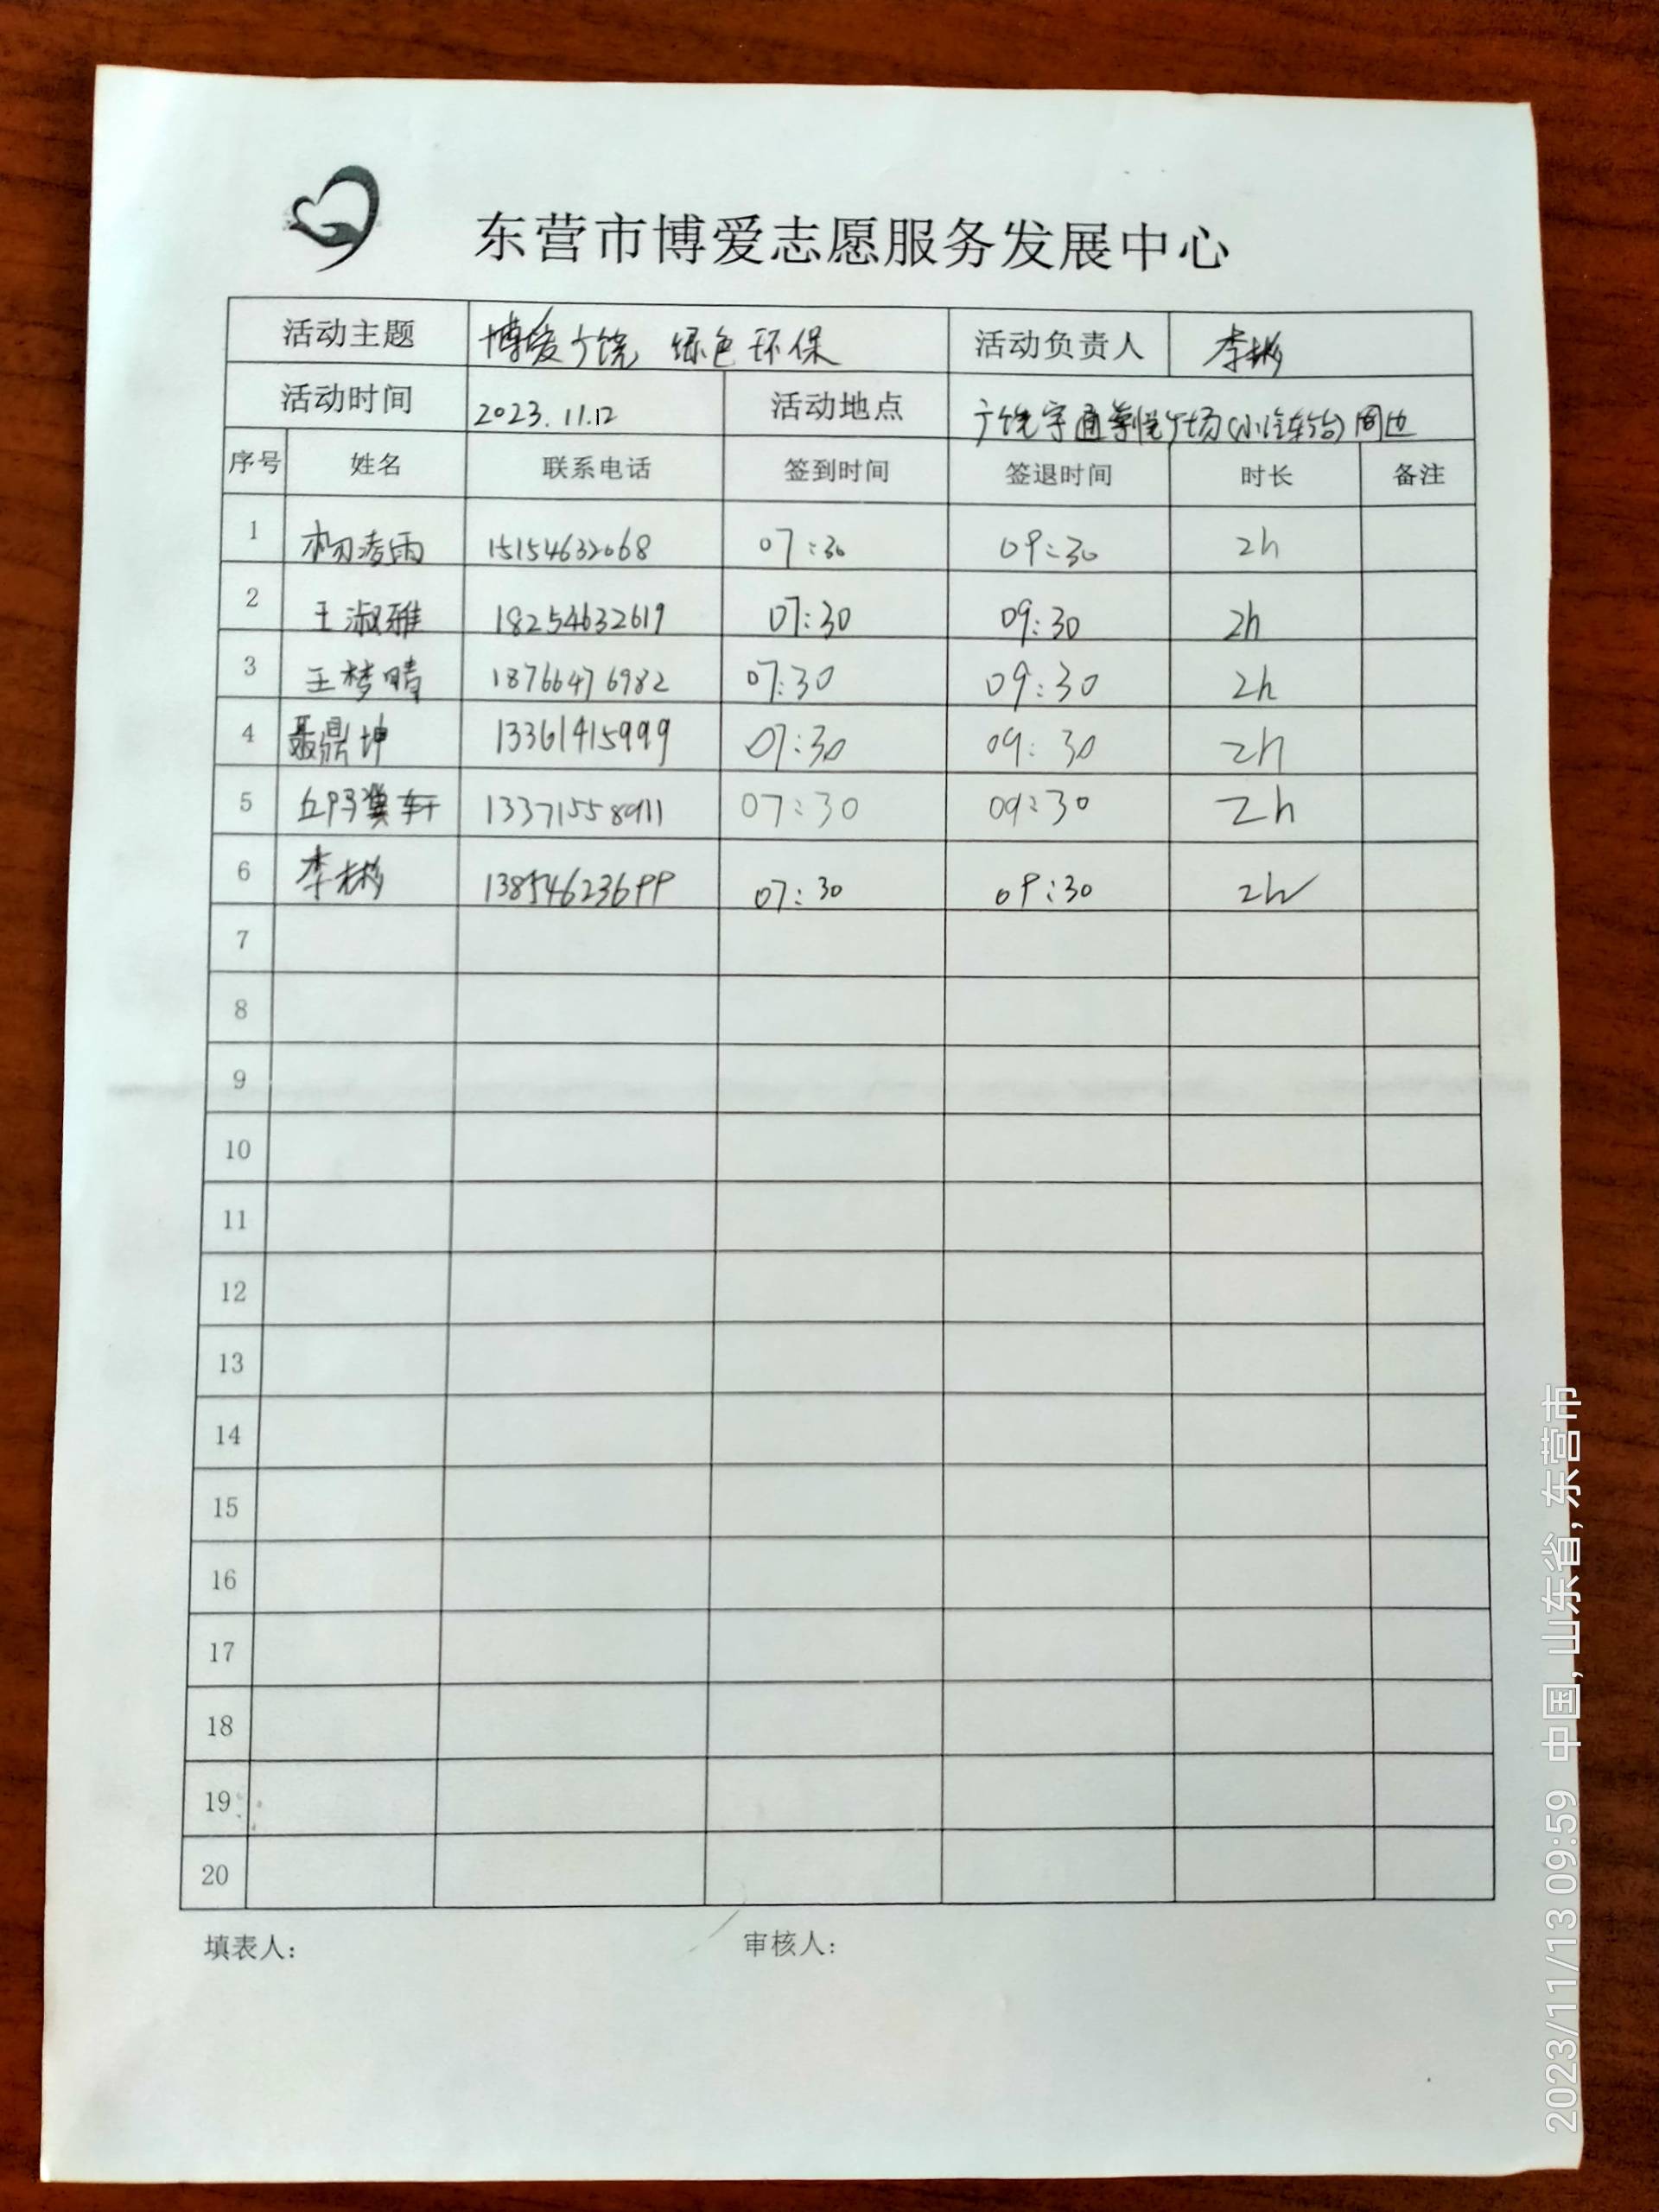 东营市博爱志愿服务发展中心
活动主题 博爱广饶 绿色环保 活动负责人 李彬
活动时间 2023.11.12 活动地点 广饶宇通尊悦广场(小汽车站)周边
序号 姓名 联系电话 签到时间 签退时间 时长 备注
1 杨凌雨 15154632068 07:30 09:30 2h
2 王淑雅 18254632619 07:30 09:30 2h
3 王梦晴 18766476982 07:30 09:30 2h
4 聂鼎坤 13361415999 07:30 09:30 2h
5 冀轩 13371558911 07:30 09:30 2h
6 李彬 13854623699 07:30 09:30 2h
7
8
9
10
11
12
13
14
15
16
17
18
19
20
填表人: 审核人:
2023/11/13 09:59 中国,山东省,东营市